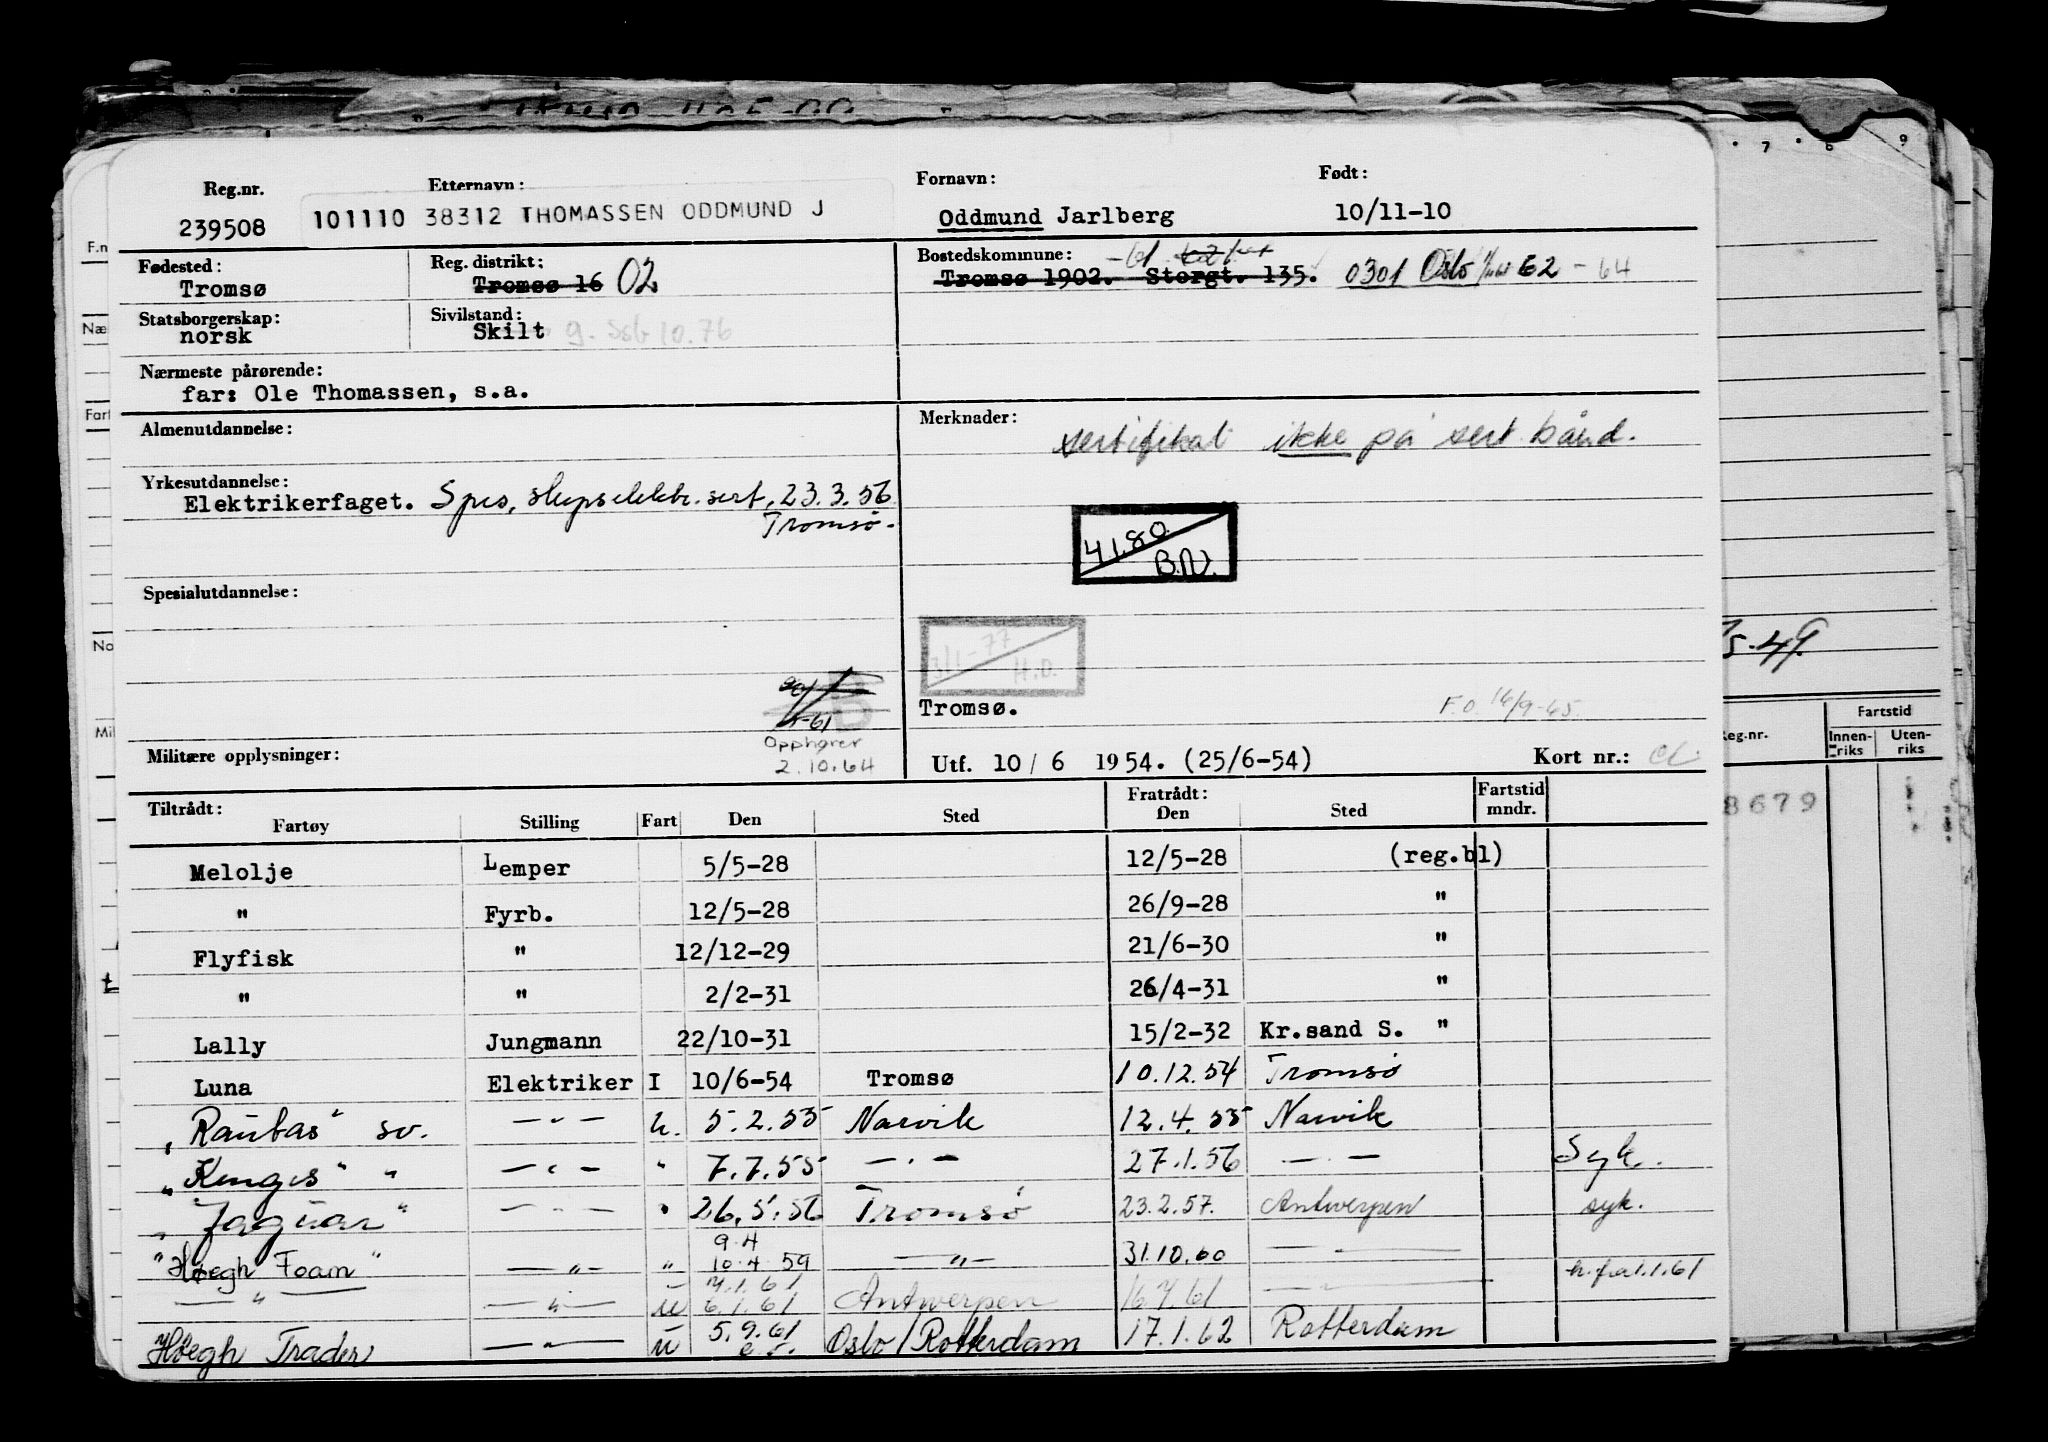 Reg.nr. Etternavn: Fornavn: Født:
239508 101110 38312 THOMASSEN ODDMUND J Oddmund Jarlberg 10/11-10
Fødested: Reg. distrikt: Bostedskommune: -61
Tromsø Tromsø 16 02 Tromsø 1902. Storgt. 135. 0301 Oslo 62 - 64
Statsborgerskap: Sivilstand:
norsk Skilt g. Ssb 10.76
Nærmeste pårørende:
far: Ole Thomassen, s.a.
Almenutdannelse: Merknader: sertifikat ikke på sert. bånd.
Yrkesutdannelse:
Elektrikerfaget. Spes. skipselektr. sert. 23.3.56
Tromsø.
4.1.80
B.N.
Spesialutdannelse:
3/1-77
H.O.
5-61
Tromsø. F.O. 16/9-65.
Opphører
2.10.64
Militære opplysninger: Utf. 10/ 6 1954. (25/6-54) Kort nr.:
Tiltrådt: Fratrådt: Fartstid
Fartøy Stilling Fart Den Sted Den Sted mndr.
Melolje Lemper 5/5-28 12/5-28 (reg.bl)
" Fyrb. 12/5-28 26/9-28 "
Flyfisk " 12/12-29 21/6-30 "
" " 2/2-31 26/4-31 "
Lally Jungmann 22/10-31 15/2-32 Kr.sand S. "
Luna Elektriker I 10/6-54 Tromsø 10.12.54 Tromsø
"Rautas" sv. — " — u. 5.2.55 Narvik 12.4.55 Narvik
"Kengis" " — " — " 7.7.55 — " — 27.1.56 — " — Syk.
"Jaguar" — " — " 26.5.56 Tromsø 23.2.57. Antwerpen syk.
9.4
"Høegh Foam" — " — " 10.4 59 — " — 31.10.60 — " —
7.1.61 h. fra 1.1.61
— " — — " — u 6.1.61 Antwerpen 16.7.61 — " —
5.9.61
Høegh Trader — " — u Oslo/Rotterdam 17.1.62 Rotterdam
5-49.
Reg.nr. Fartstid
Innen-riks Uten-riks
8679
7 8 9
F.n
Næ
Fart
No
Mil